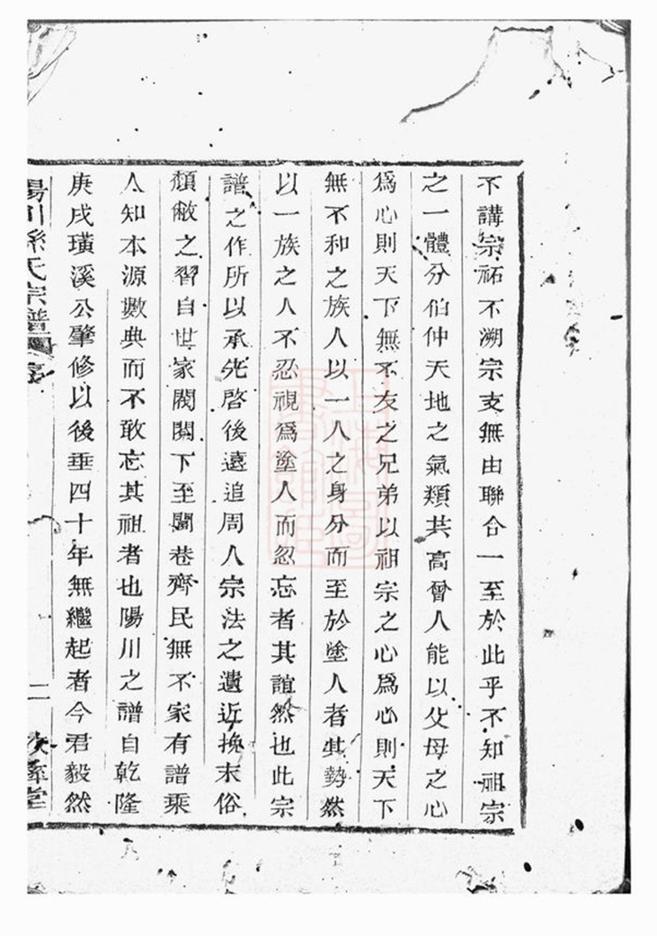 不講宗祏不溯宗支無由聯合一至於此乎不知祖宗
之一體分伯仲天地之氣類共高曾人能以父母之心
爲心則天下無不友之兄弟以祖宗之心爲心則天下
無不和之族人以一人之身分而至於塗人者其勢然
以一族之人不忍視爲塗人而忽忘者其誼然也此宗
譜之作所以承先啓後遠追周人宗法之遺近挽末俗
頹敝之習自世家閥閱下至閭巷齊民無不家有譜乘
人知本源數典而不敢忘其祖者也陽川之譜自乾隆
庚戌璜溪公肇修以後垂四十年無繼起者今君毅然
陽川孫氏宗譜 序 二 敘彝堂
上海圖書館藏